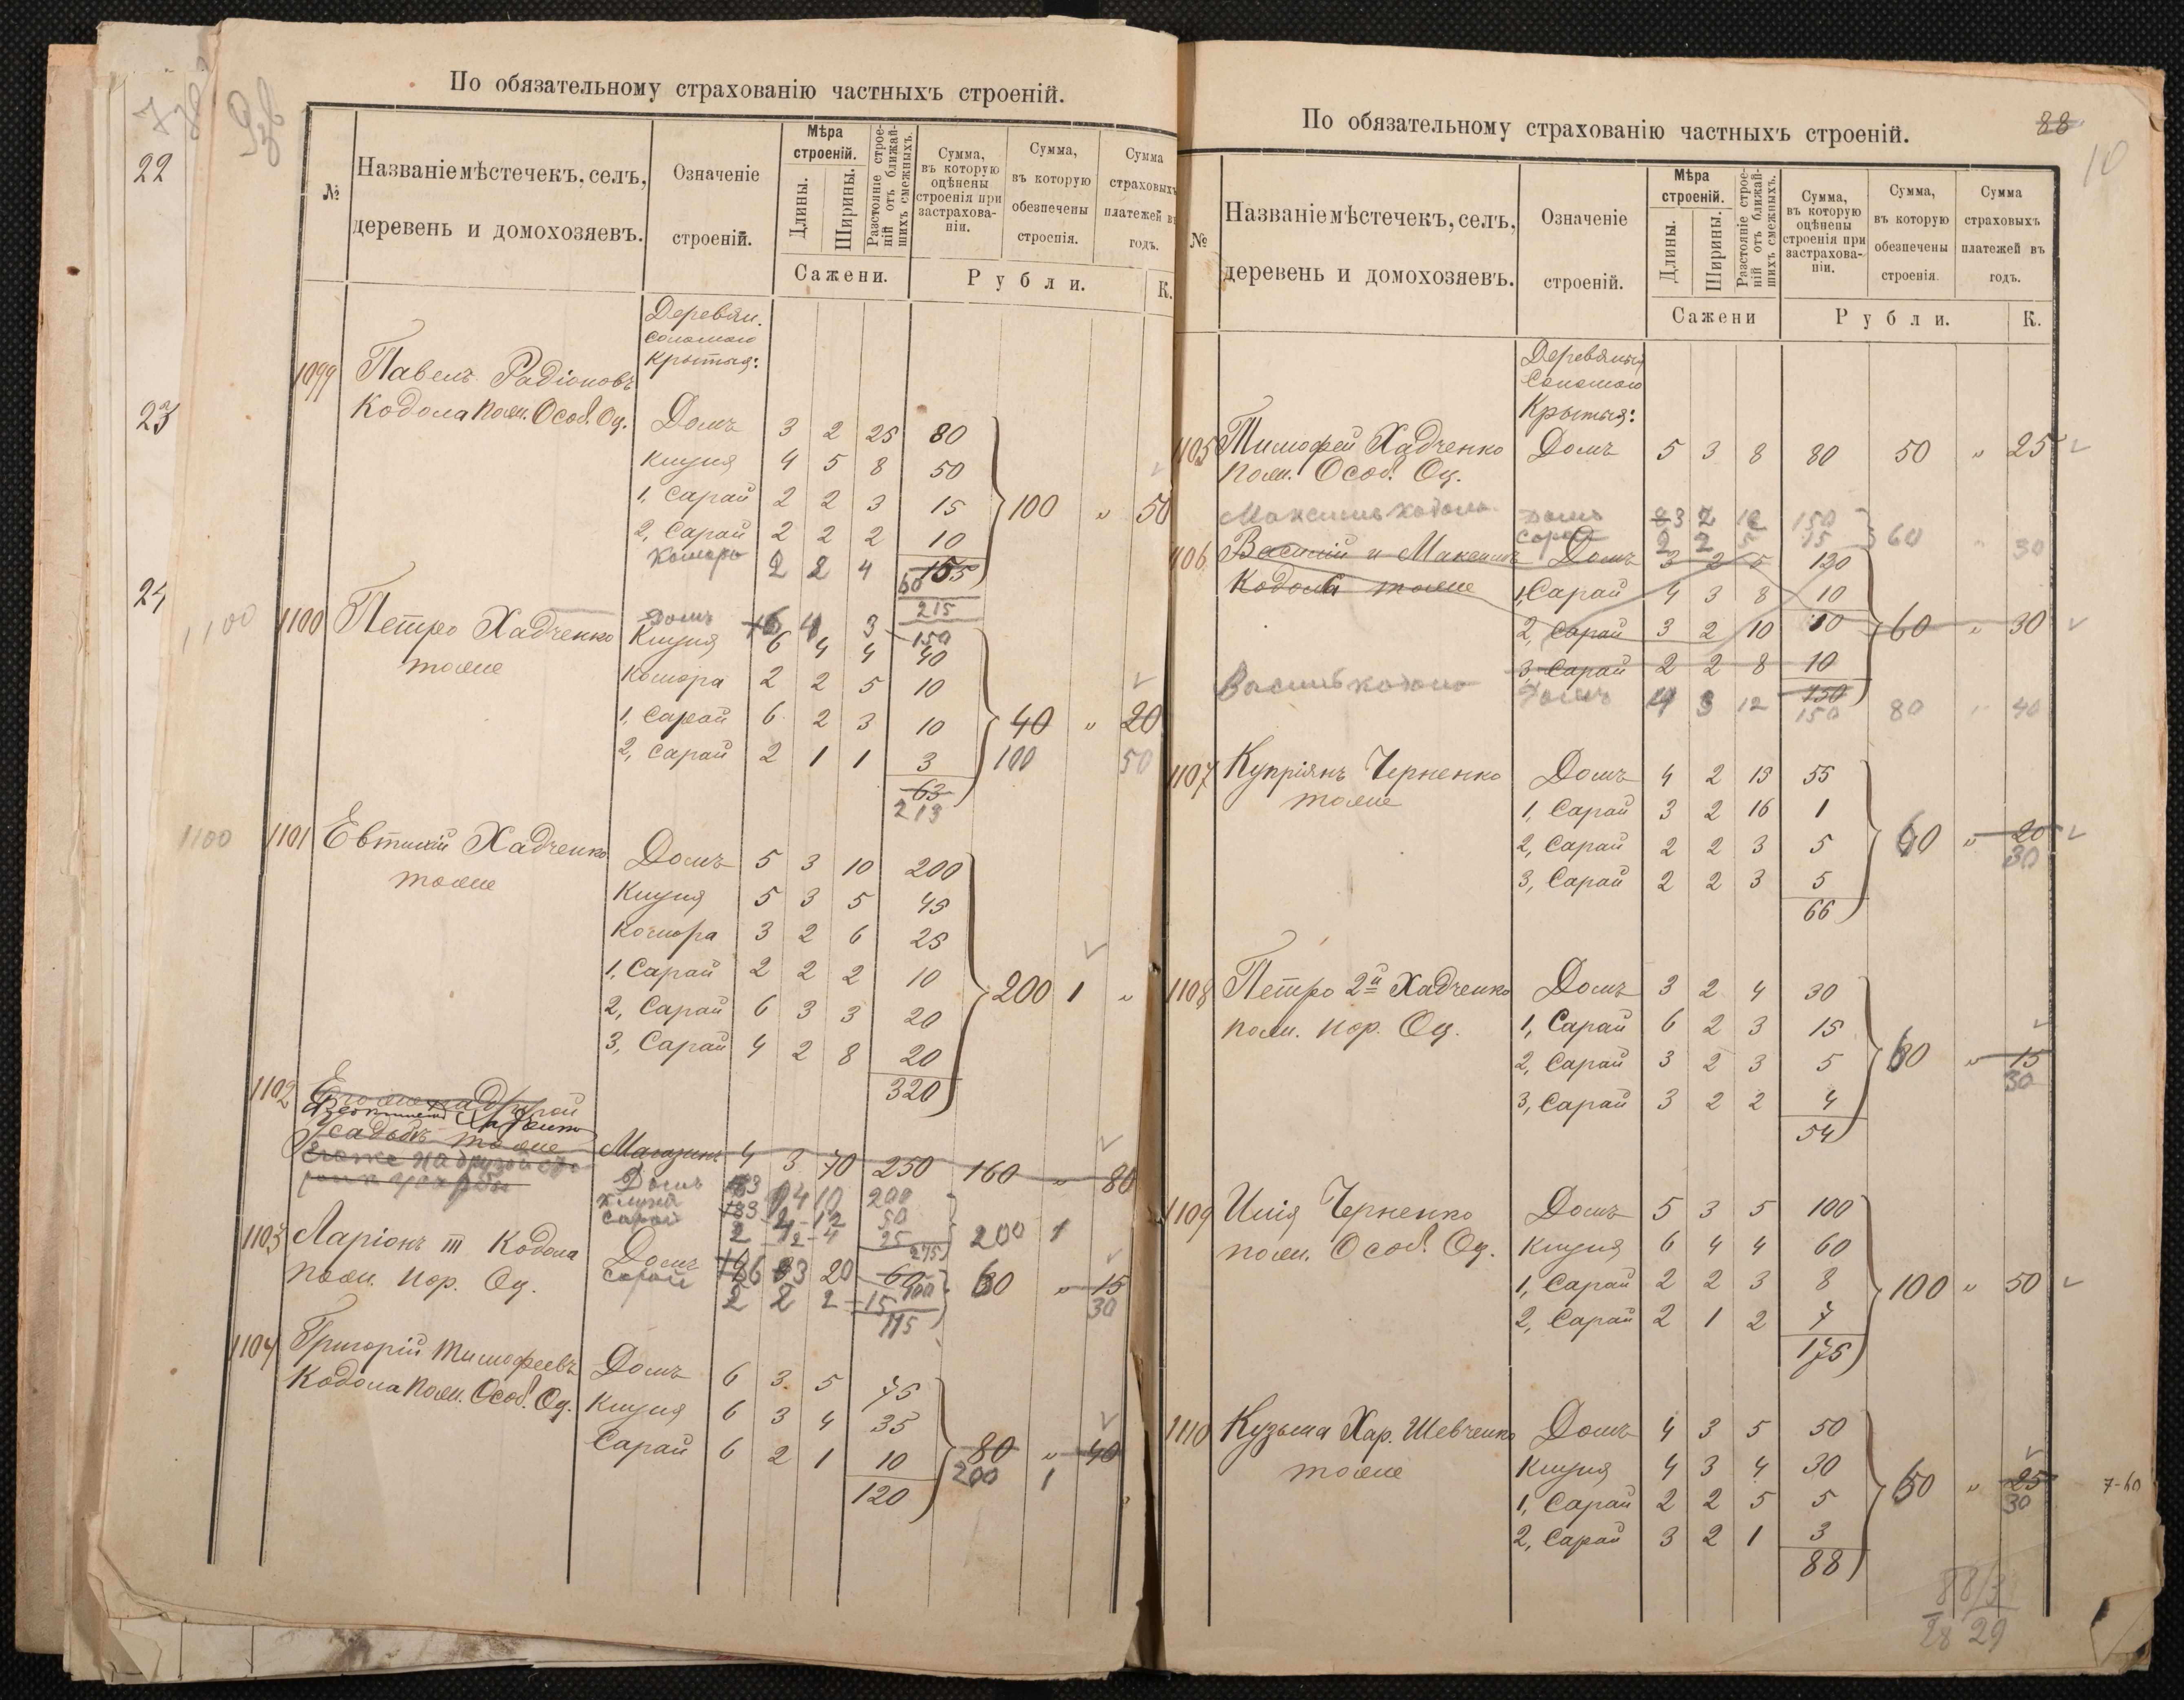 По обязательному страхованію частныхъ строеній.
№
Названіе мѣстечекъ, селъ, деревень и домохозяевъ.
Означеніе строеній.
Мѣра строеній.
Длины.
Ширины.
Разстояніе строеній отъ ближайшихъ смежныхъ.
Сажени.
Сумма, въ которую оцѣнены строенія при застрахованіи.
Сумма, въ которую обезпечены строенія.
Сумма страховыхъ платежей въ годъ.
Рубли.
К.
22
23
24
Деревян.
соломою
крытыя:
1099 Павелъ Радіоновъ
Кодола пом. Особ. Оц. Домъ 3 2 25 80
Клуня 4 5 8 50
1, Сарай 2 2 3 15 100 " 50
2, Сарай 2 2 2 10
Комора 2 2 4 155
60
215
1100
1100 Петро Хадченко Домъ 3 150
тоже Клуня 6 4 4 40
Комора 2 2 5 10
1, Сарай 6 2 3 10 40 " 20
2, Сарай 2 1 1 3 100 50
63
213
1100
1101 Евтихій Хадченко Домъ 5 3 10 200
тоже Клуня 5 3 5 45
Комора 3 2 6 25
1, Сарай 2 2 2 10 200 1 "
2, Сарай 6 3 3 20
3, Сарай 4 2 8 20
320
1102
Усадьбѣ тоже Магазинъ 4 3 70 250 160 " 80
Домъ 200
Клуня 50
Сарай 2 25
275 200 1
1103 Ларіонъ III Кодола Домъ 20 60
пом. нор. Оц. Сарай 100 60 " 15
2 2 2 15 30
115
1104 Григорій Тимофеевъ Домъ 6 3 5 75
Кодола пом. Особ. Оц. Клуня 6 3 4 35
Сарай 6 2 1 10 80 " 40
120 200 1
По обязательному страхованію частныхъ строеній.
88
10
№
Названіе мѣстечекъ, селъ, деревень и домохозяевъ.
Означеніе строеній.
Мѣра строеній.
Длины.
Ширины.
Разстояніе строеній отъ ближайшихъ смежныхъ.
Сажени
Сумма, въ которую оцѣнены строенія при застрахованіи.
Сумма, въ которую обезпечены строенія.
Сумма страховыхъ платежей въ годъ.
Рубли.
К.
Деревяныя
Соломою
Крытыя:
1105 Тимофей Хадченко Домъ 5 3 8 80 50 " 25
пом. Особ. Оц.
Максимъ Кодола Домъ 3 2 12 150
Сарай 2 2 5 15 60 " 30
1106 Василій и Максимъ Домъ 3 2 5 120
Кодола тоже 1, Сарай 4 3 8 10
2, Сарай 3 2 10 10 60 " 30
3, Сарай 2 2 8 10
150
Василь Кодола Домъ 4 3 12 150 80 " 40
1107 Купріянъ Черненко Домъ 4 2 13 55
тоже 1, Сарай 3 2 16 1
2, Сарай 2 2 3 5 60 " 20
3, Сарай 2 2 3 5 30
66
1108 Петро 2й Хадченко Домъ 3 2 4 30
пом. нор. Оц. 1, Сарай 6 2 3 15
2, Сарай 3 2 3 5 60 " 15
3, Сарай 3 2 2 4 30
54
1109 Илія Черненко Домъ 5 3 5 100
пом. Особ. Оц. Клуня 6 4 4 60
1, Сарай 2 2 3 8 100 " 50
2, Сарай 2 1 2 7
175
1110 Кузьма Хар. Шевченко Домъ 4 3 5 50
тоже Клуня 4 3 4 30
1, Сарай 2 2 5 5 60 " 25
2, Сарай 3 2 1 3 30
88
7-60
88/3
28 29